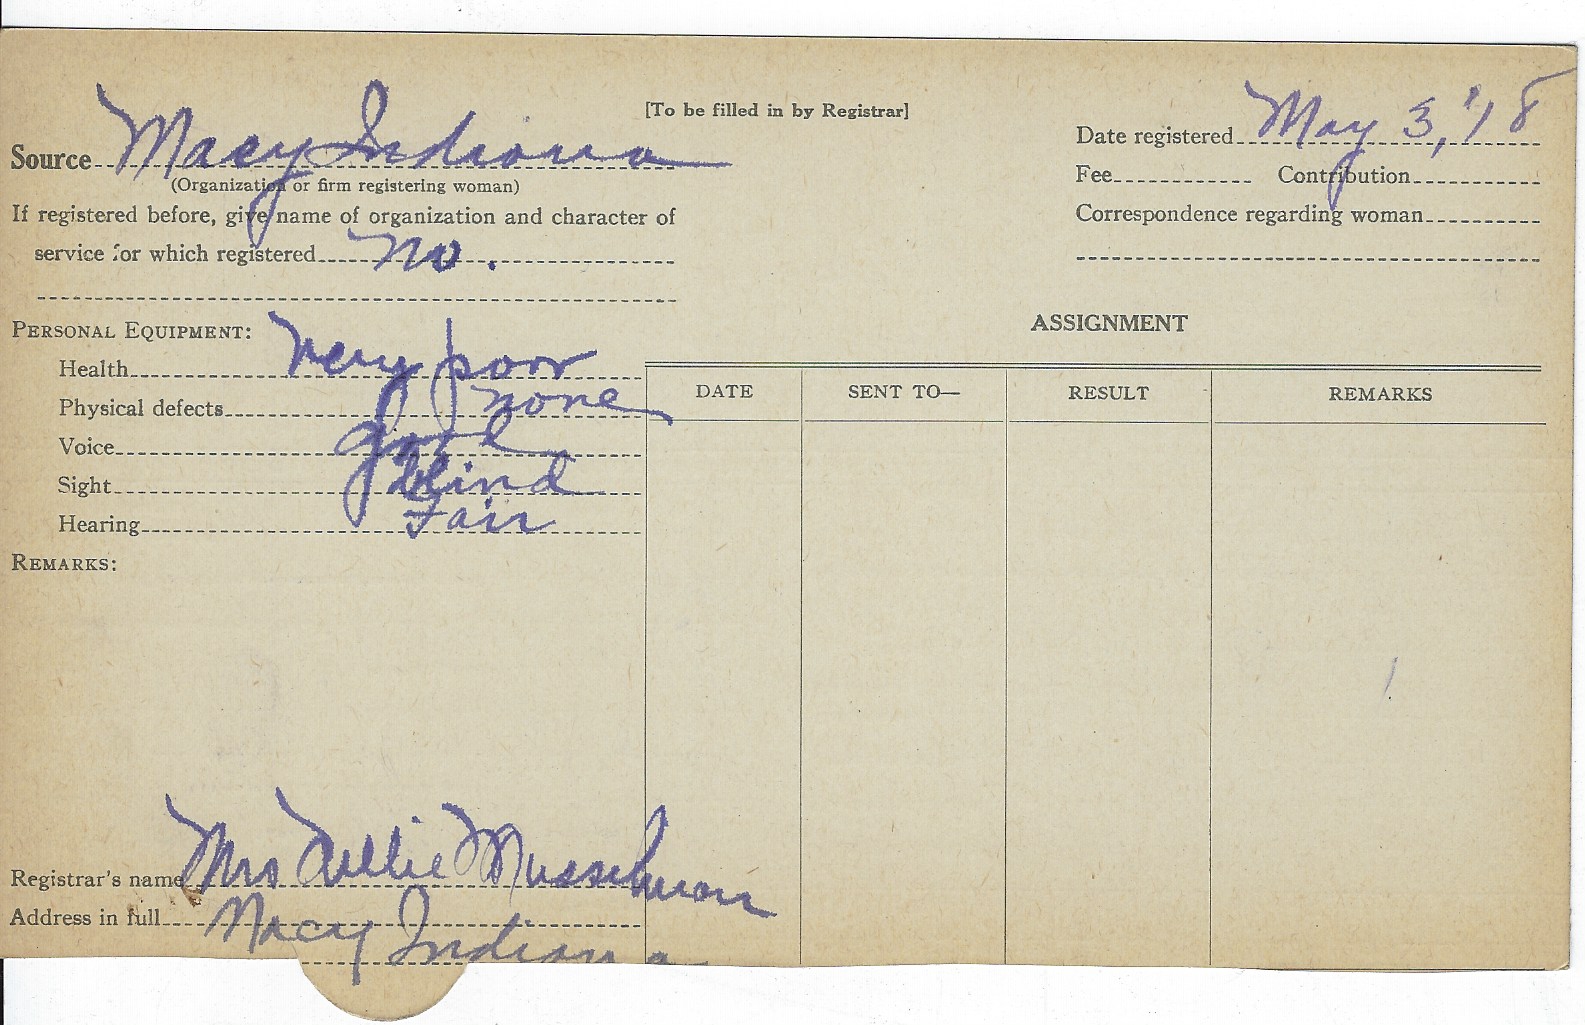 [To be filled in by Registrar]
Source Macy Indiana
(Organization or firm registering woman)
If registered before, give name of organization and character of
service for which registered No.
Date registered May 3, '18
Fee Contribution
Correspondence regarding woman
PERSONAL EQUIPMENT:
Health Very poor
Physical defects none
Voice good
Sight Blind
Hearing Fair
REMARKS:
ASSIGNMENT
DATE SENT TO— RESULT REMARKS
Registrar's name Mrs Nellie Musselman
Address in full Macy Indiana